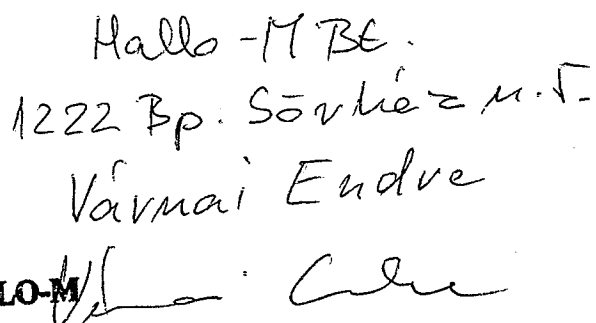 Hallo-M BE.
1222 Bp. Sörház u. 5.
Várnai Endre
LO-M